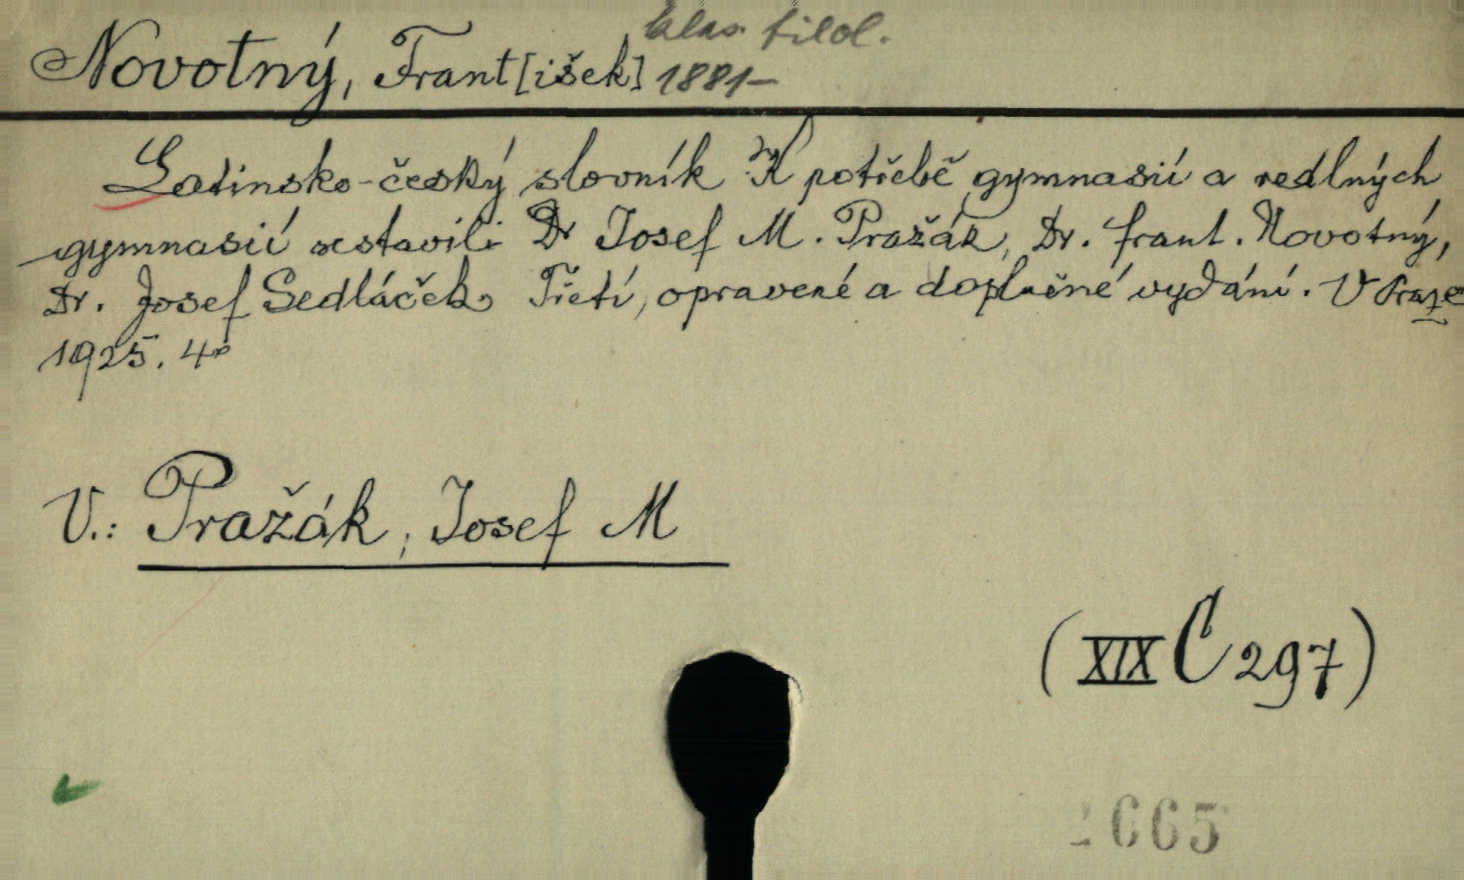 klas. filol.
Novotný, Frant[išek] 1881-
Latinsko-český slovník K potřebě gymnasií a reálných
gymnasií sestavili Dr Josef M. Pražák, Dr. Frant. Novotný,
Dr. Josef Sedláček Třetí, opravené a doplněné vydání. V Praze
1925. 4°
V.: Pražák, Josef M
(XIX C 297)
665